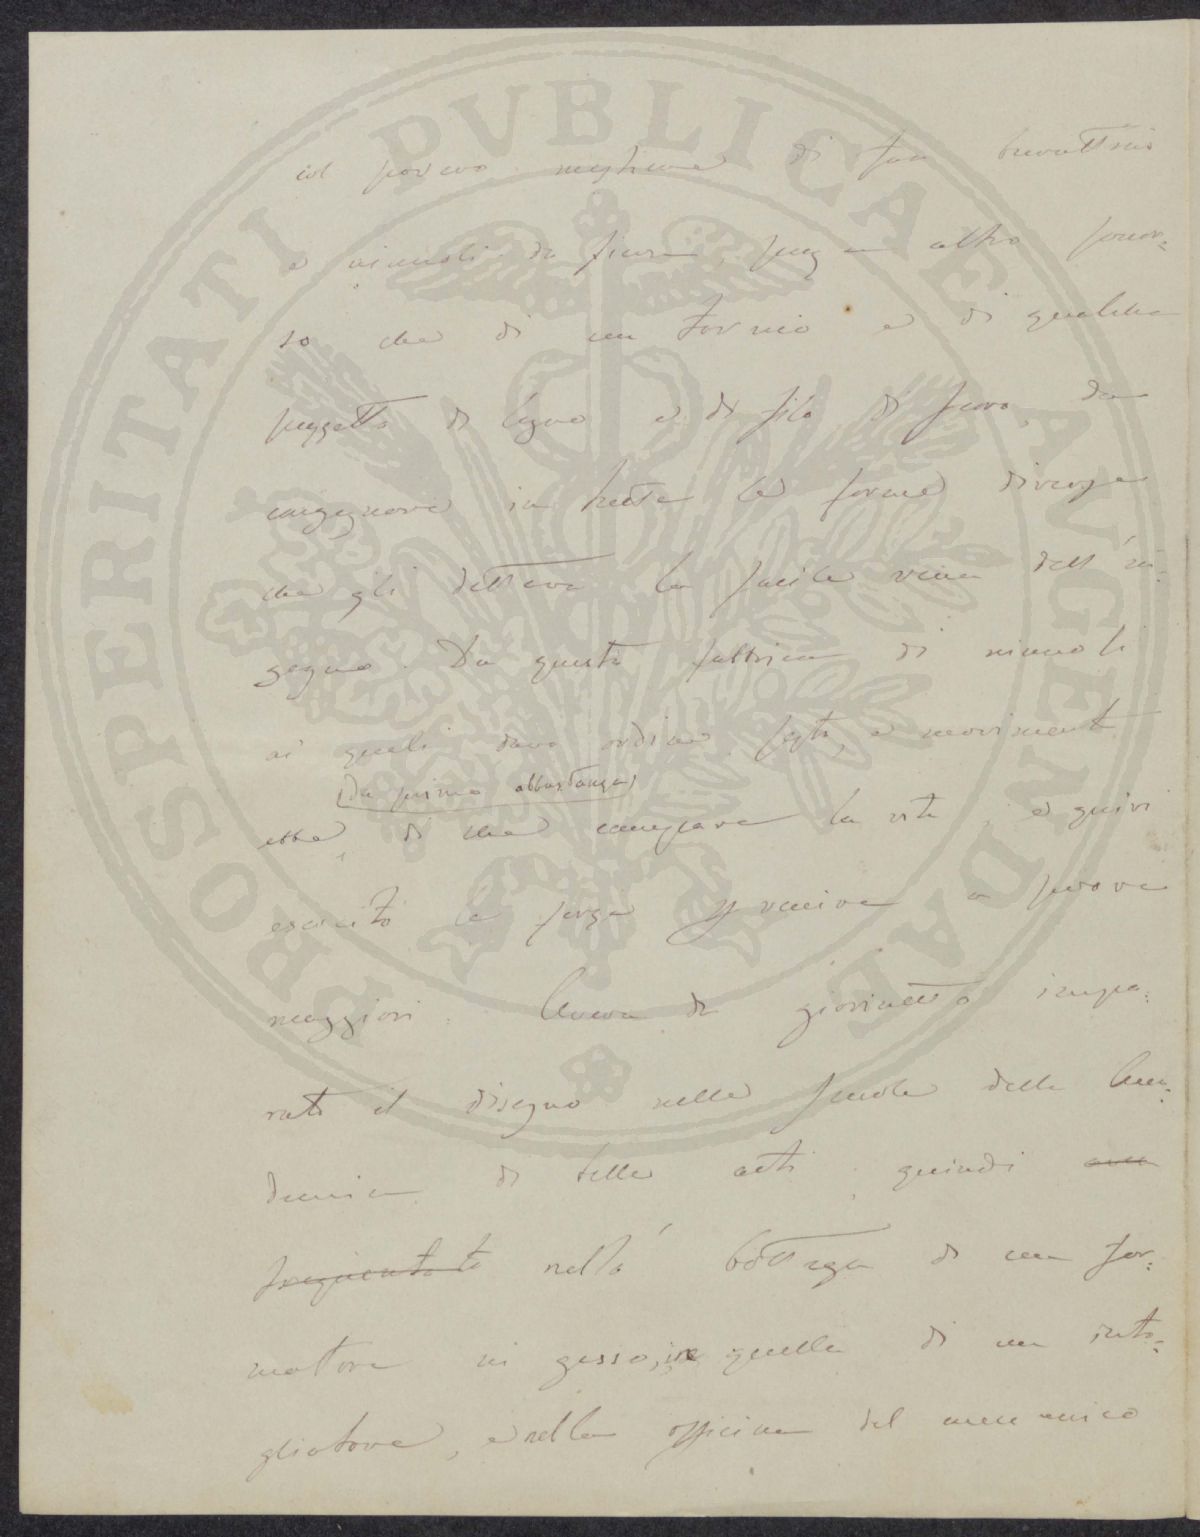 PROSPERITATI PVBLICAE AVGENDAE
col povero mestiere di far burattini
e ninnoli da fiera, senza altro soccor-
so che di un tornio e di qualche
pezzetto di legno e di filo di ferro, da
congegnare in tutte le forme diverse
che gli dettava la facile vena dell'in-
gegno. Da questa fabbrica di ninnoli
ai quali dava ordine, gesti, e movimenti
(da prima abbastanza)
ebbe, di che campare la vita, e quivi
le forze veniva a prove
maggiori. Aveva da giovinetto impa-
rato il disegno nelle scuole della Acca-
demia di belle arti, quindi
frequentato nella bottega di un for-
matore in gesso, in quella di un inta-
gliatore, e nella officina del meccanico